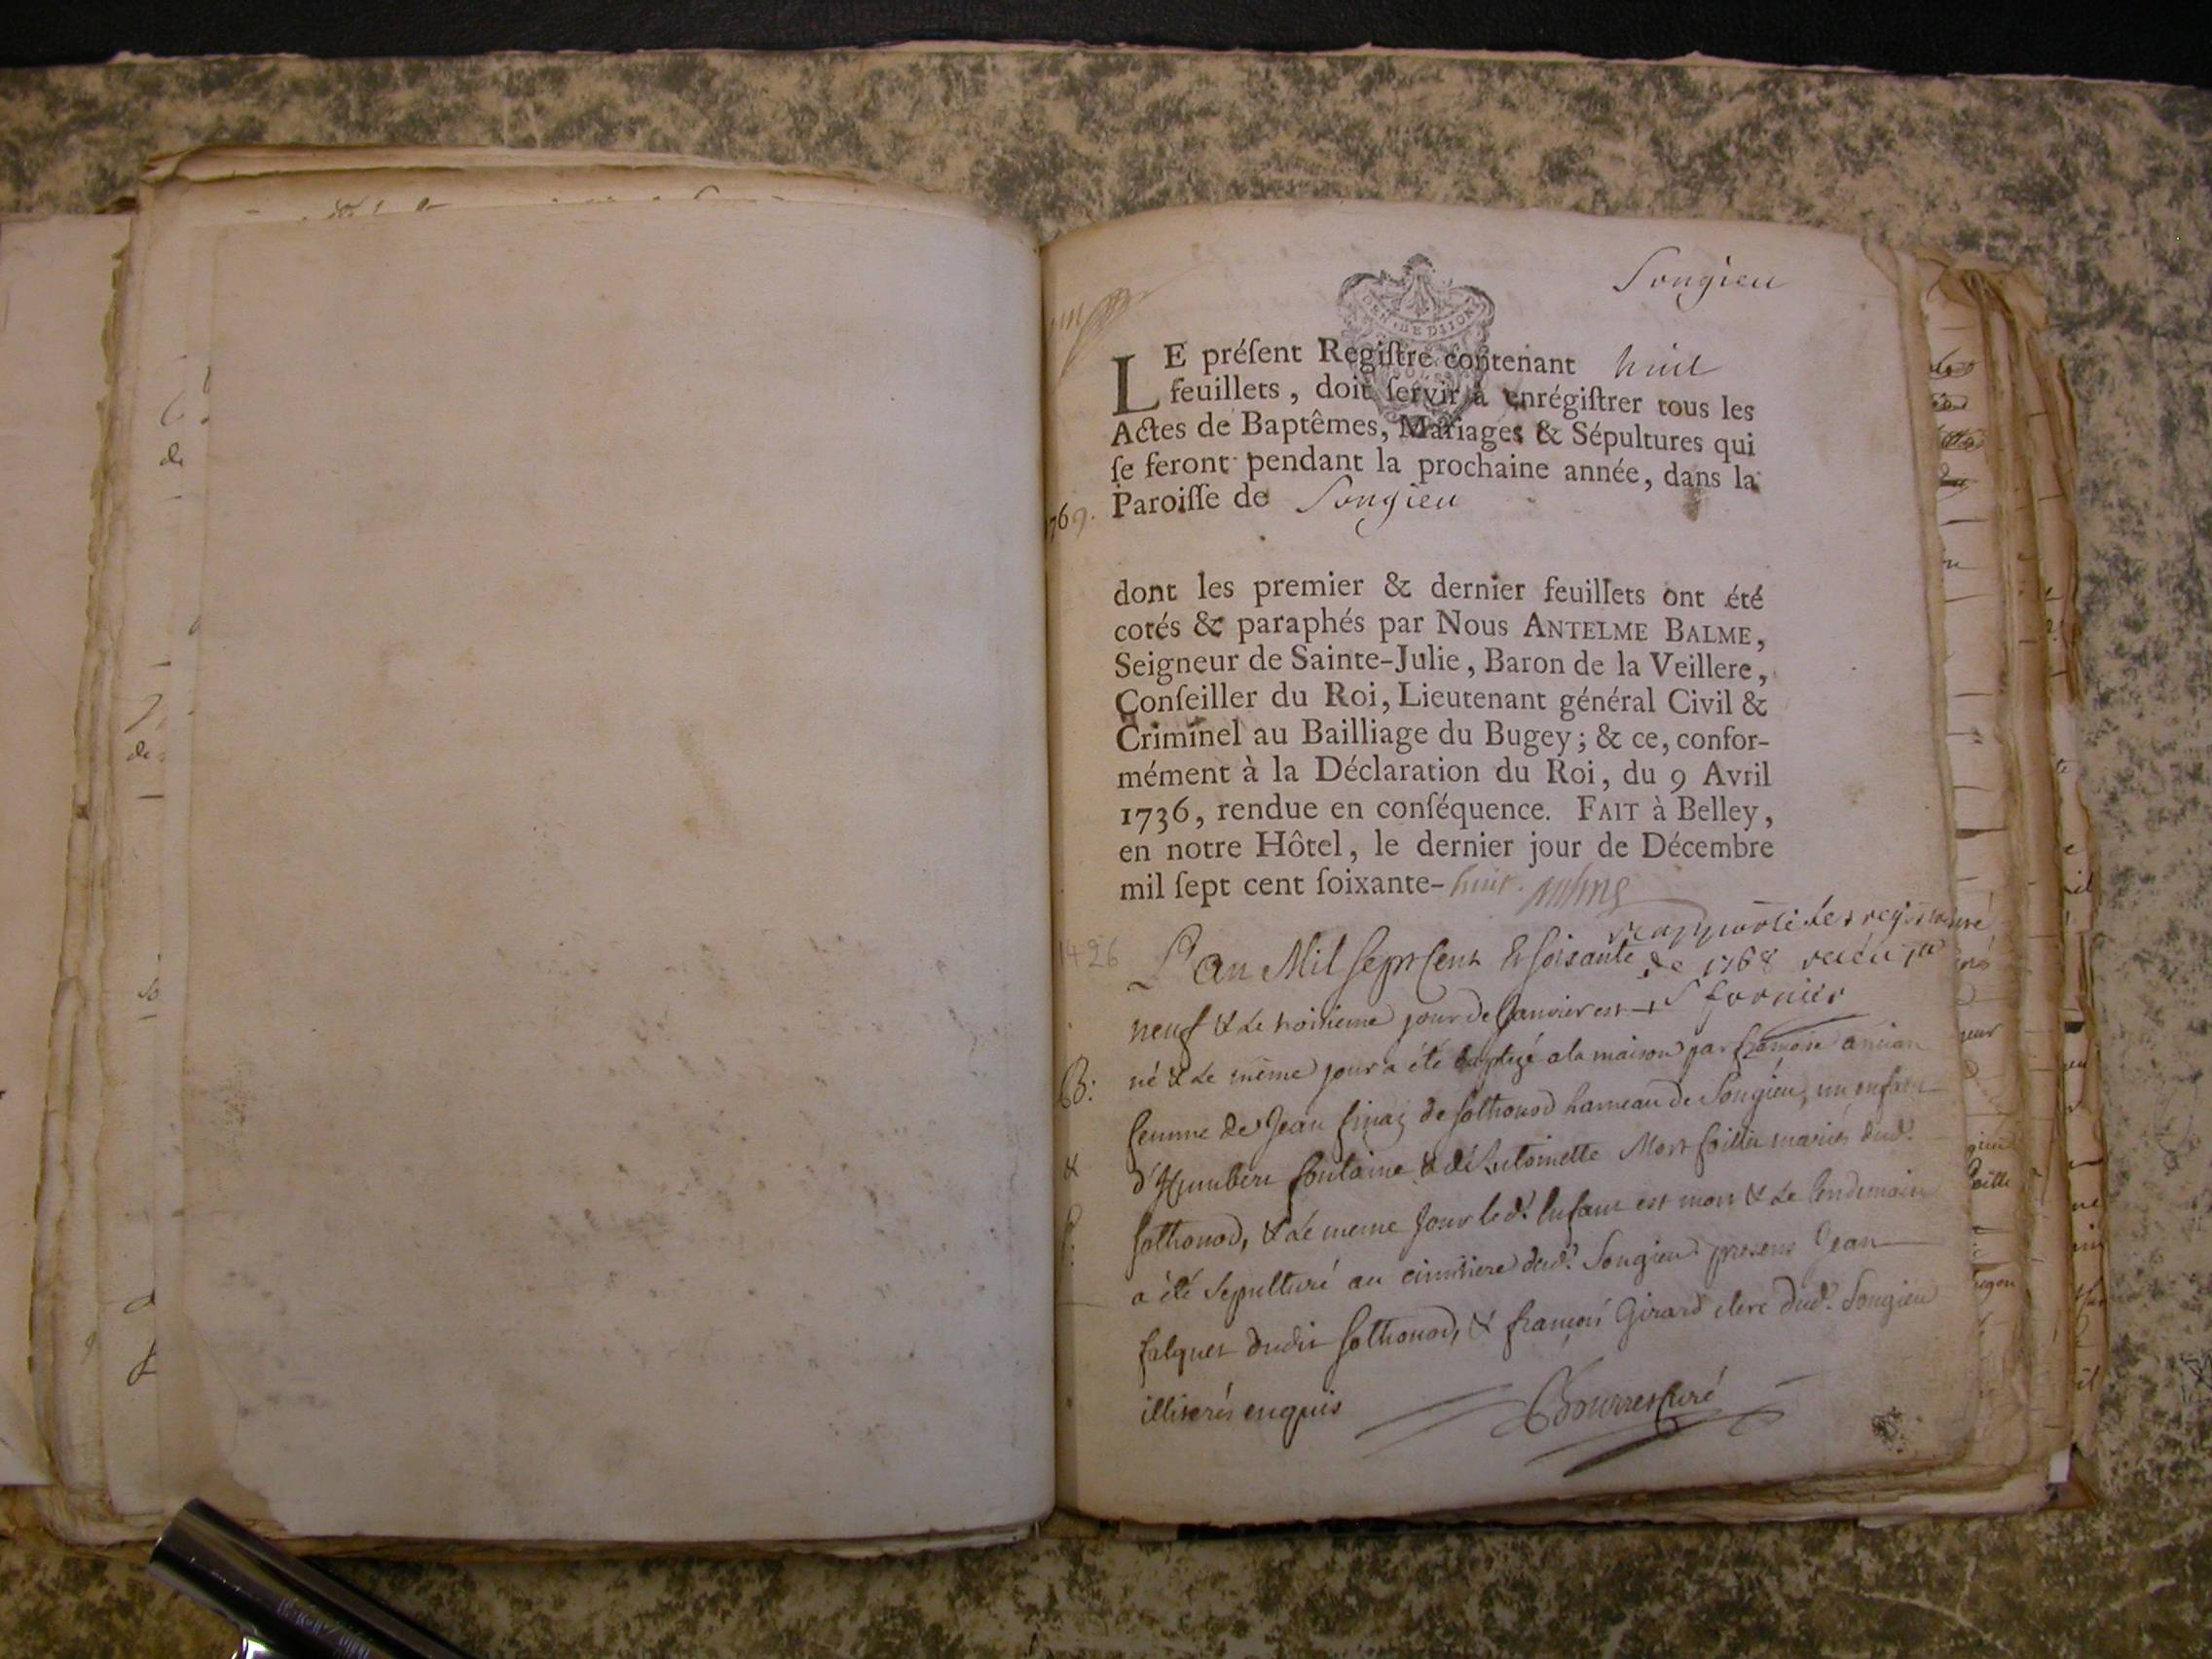 Songieu
GEN. DE DIJON
LE préſent Regiſtre contenant huit
feuillets, doit ſervir à enrégiſtrer tous les
Actes de Baptêmes, Mariages & Sépultures qui
ſe feront pendant la prochaine année, dans la
1769. Paroiſſe de Songieu
dont les premier & dernier feuillets ont été
cotés & paraphés par Nous ANTELME BALME,
Seigneur de Sainte-Julie, Baron de la Veillere,
Conſeiller du Roi, Lieutenant général Civil &
Criminel au Bailliage du Bugey; & ce, confor-
mément à la Déclaration du Roi, du 9 Avril
1736, rendue en conſéquence. FAIT à Belley,
en notre Hôtel, le dernier jour de Décembre
mil ſept cent ſoixante-huit. Balme
rapporté les registres
de 1768 recu
S fornier
1426 L'an Mil Sept Cent & soixante
neuf & Le troisieme jour de Janvier est
B: né & Le même jour a été baptizé a la maison par françoise ancian
femme de Jean finaz de sothonod hameau de Songieu, un enfant
& d'Humbert fontaine & d'Antoinette Mort foillir mariés dud.
S: Sothonod, & Le meme Jour led. Enfant est mort & Le lendemain
a été Sepulturé au cimitiere dud. Songieu presens Jean
falquet dudit Sothonod, & françois Girard clerc dud. Songieu
illiterés enquis Bourres Curé